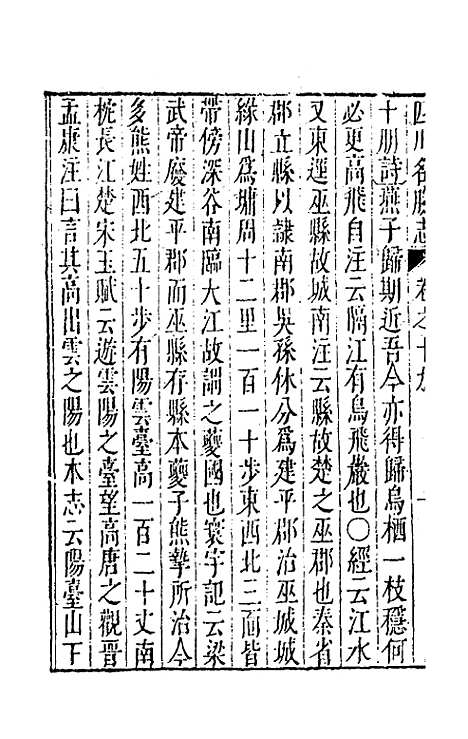 四川名勝志 卷之十九
十朋詩燕子歸期近吾今亦得歸烏棲一枝穩何
必更高飛自注云隔江有烏飛巖也〇經云江水
又東逕巫縣故城南注云縣故楚之巫郡也秦省
郡立縣以隸南郡吳孫休分爲建平郡治巫城城
緣山爲墉周十二里一百一十步東西北三面皆
帶傍深谷南臨大江故謂之夔國也寰宇記云梁
武帝廢建平郡而巫縣存縣本夔子熊摯所治今
多熊姓西北五十步有陽雲臺高一百二十丈南
枕長江楚宋玉賦云遊雲陽之臺望高唐之觀晋
孟康注曰言其高出雲之陽也本志云陽臺山下